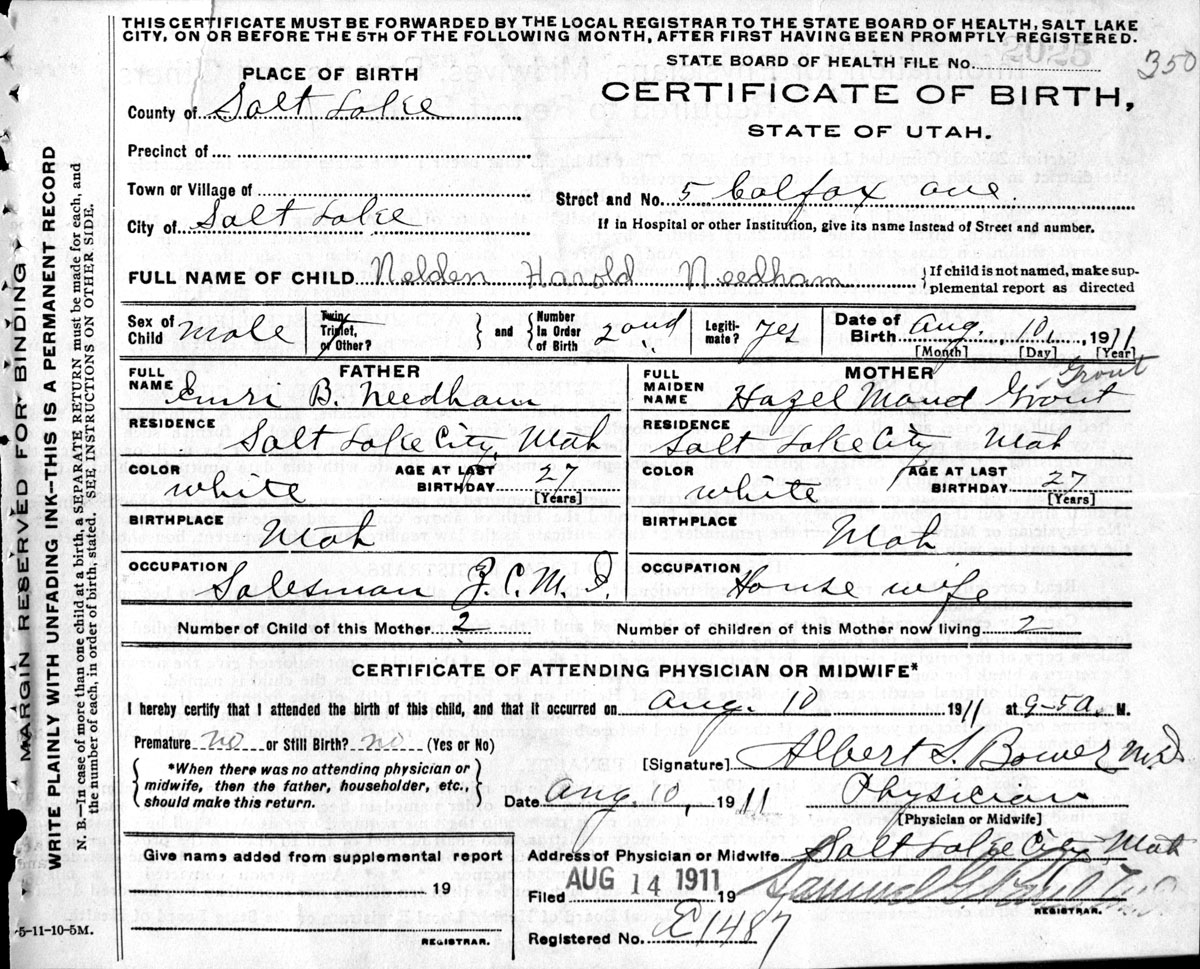 THIS CERTIFICATE MUST BE FORWARDED BY THE LOCAL REGISTRAR TO THE STATE BOARD OF HEALTH, SALT LAKE
CITY, ON OR BEFORE THE 5TH OF THE FOLLOWING MONTH, AFTER FIRST HAVING BEEN PROMPTLY REGISTERED.
STATE BOARD OF HEALTH FILE No. 350
PLACE OF BIRTH
CERTIFICATE OF BIRTH,
STATE OF UTAH.
County of Salt Lake
Precinct of
Town or Village of
Street and No. 5 Colfax ave
City of Salt Lake
If in Hospital or other Institution, give its name instead of Street and number.
FULL NAME OF CHILD Nelden Harold Needham
If child is not named, make sup-
plemental report as directed
Sex of Child male
Twin, Triplet, or Other?
and
Number in Order of Birth 2ond
Legiti-mate? yes
Date of Birth Aug. 10, 1911
[Month] [Day] [Year]
FATHER
FULL NAME Emri B. Needham
RESIDENCE Salt Lake City, Utah
COLOR white AGE AT LAST BIRTHDAY 27 [Years]
BIRTHPLACE Utah
OCCUPATION Salesman Z.C.M.I.
MOTHER
Grout
FULL MAIDEN NAME Hazel Maud Grout
RESIDENCE Salt Lake City, Utah
COLOR white AGE AT LAST BIRTHDAY [Years]
BIRTHPLACE Utah
OCCUPATION House wife
Number of Child of this Mother 2
Number of children of this Mother now living 2
CERTIFICATE OF ATTENDING PHYSICIAN OR MIDWIFE*
I hereby certify that I attended the birth of this child, and that it occurred on Aug. 10 1911 at 9-5 a. M.
Premature no or Still Birth? no (Yes or No)
*When there was no attending physician or
midwife, then the father, householder, etc.,
should make this return.
[Signature] Albert S. Bower M.D.
Date Aug. 10, 1911 Physician
[Physician or Midwife]
Give name added from supplemental report
19
REGISTRAR.
Address of Physician or Midwife Salt Lake City, Utah
Filed AUG 14 1911 19
Samuel G. Paul
REGISTRAR.
Registered No. E1487
5-11-10-5M.
MARGIN RESERVED FOR BINDING
WRITE PLAINLY WITH UNFADING INK--THIS IS A PERMANENT RECORD
N. B.--In case of more than one child at a birth, a SEPARATE RETURN must be made for each, and
the number of each, in order of birth, stated. SEE INSTRUCTIONS ON OTHER SIDE.